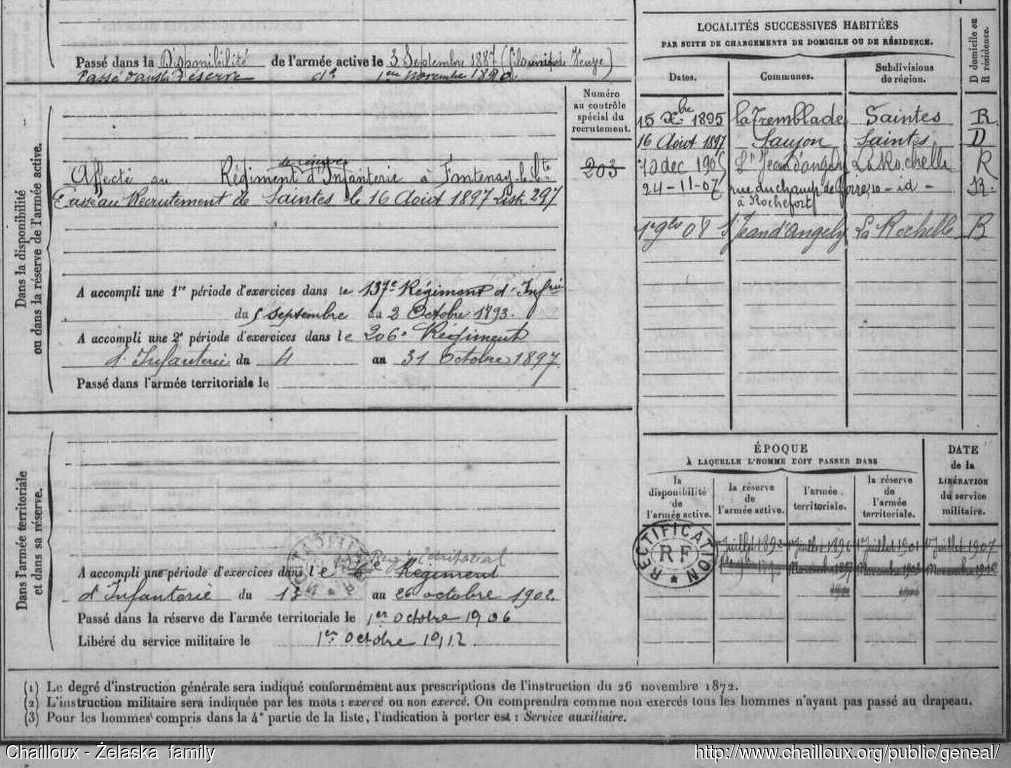 Passé dans la Disponibilité de l'armée active le 3 Septembre 1887 (fils unique de Veuve)
Passé dans la Réserve d° 1er Novembre 1890.
Numéro
au contrôle
spécial du
recrutement.
203
Dans la disponibilité
ou dans la réserve de l'armée active.
de réserve
Affecté au Régiment d'Infanterie à Fontenay-le-Cte
au Recrutement de Saintes le 16 Août 1897 List. 297
A accompli une 1re période d'exercices dans le 137e Régiment d'Infrie
du 5 Septembre au 2 Octobre 1893.
A accompli une 2e période d'exercices dans le 206e Régiment
d'Infanterie du 4 au 31 Octobre 1897.
Passé dans l'armée territoriale le
Dans l'armée territoriale
et dans sa réserve.
territorial
A accompli une période d'exercices dans le 6 Régiment
d'Infanterie du 13 au 26 octobre 1902.
Passé dans la réserve de l'armée territoriale le 1er octobre 1906
Libéré du service militaire le 1er Octobre 1912
LOCALITÉS SUCCESSIVES HABITÉES
PAR SUITE DE CHANGEMENTS DE DOMICILE OU DE RÉSIDENCE.
D domicile ou
R résidence.
Dates. Communes. Subdivisions
de région.
15 Xbre 1895 la Tremblade Saintes R
16 Août 1897 Saujon Saintes D
10 dec 1905 St Jean d'angely La Rochelle R
24-11-07 rue du champ de foire 10 - id - R.
à Rochefort
08 St Jean d'angely La Rochelle R
ÉPOQUE
À LAQUELLE L'HOMME DOIT PASSER DANS
DATE
de la
LIBÉRATION
du service
militaire.
la
disponibilité
de
l'armée active.
la réserve
de
l'armée active.
l'armée
territoriale.
la réserve
de
l'armée
territoriale.
RECTIFICATION
RF
Juillet 1890 Juillet 1896 Juillet 1901 Juillet 1907
(1) Le degré d'instruction générale sera indiqué conformément aux prescriptions de l'instruction du 26 novembre 1872.
(2) L'instruction militaire sera indiquée par les mots : exercé ou non exercé. On comprendra comme non exercés tous les hommes n'ayant pas passé au drapeau.
(3) Pour les hommes compris dans la 4e partie de la liste, l'indication à porter est : Service auxiliaire.
Chailloux - Żelaska family
http://www.chailloux.org/public/geneal/